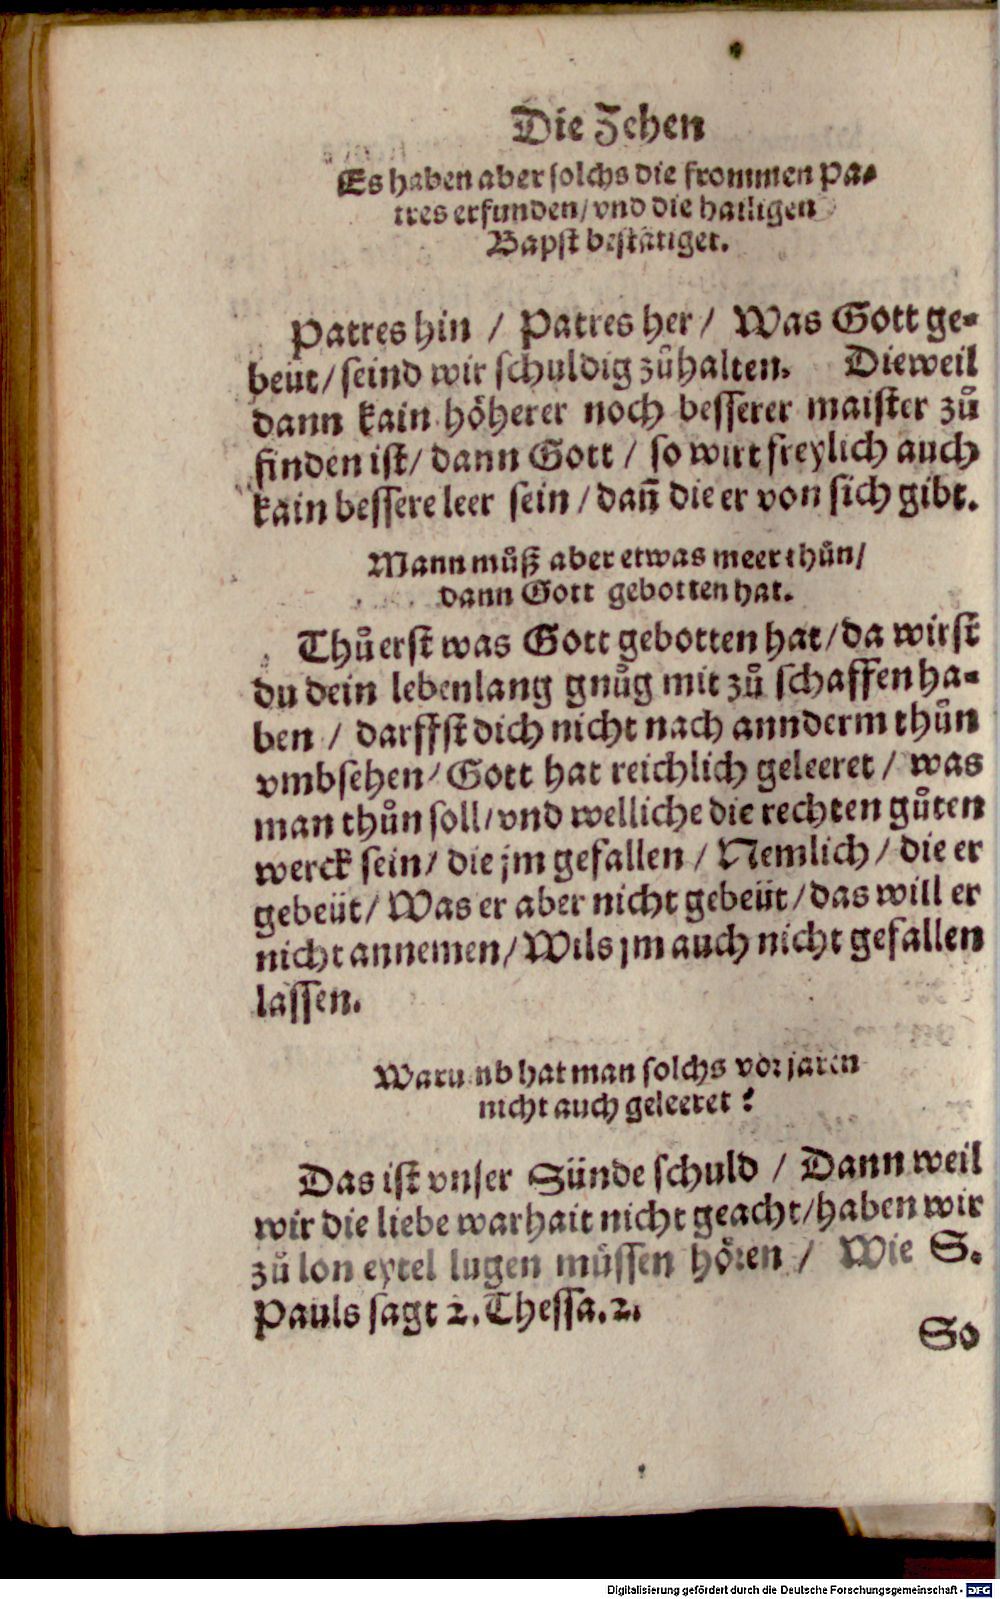 Die Zehen
Es haben aber solchs die frommen Pa-
tres erfunden/ vnd die hailigen
Bapst bestätiget.
Patres hin / Patres her / Was Gott ge-
beüt / seind wir schuldig zůhalten. Dieweil
dann kain höherer noch besserer maister zů
finden ist / dann Gott / so wirt freylich auch
kain bessere leer sein / dañ die er von sich gibt.
Mann můß aber etwas meer thůn /
dann Gott gebotten hat.
Thů erst was Gott gebotten hat / da wirst
du dein lebenlang gnůg mit zů schaffen ha-
ben / darffst dich nicht nach annderm thůn
vmbsehen / Gott hat reichlich geleeret / was
man thůn soll / vnd welliche die rechten gůten
werck sein / die jm gefallen / Nemlich / die er
gebeüt / Was er aber nicht gebeüt / das will er
nicht annemen / Wils jm auch nicht gefallen
lassen.
Warumb hat man solchs vor jaren
nicht auch geleeret?
Das ist vnser Sünde schuld / Dann weil
wir die liebe warhait nicht geacht / haben wir
zů lon eytel lugen müssen hören / Wie S.
Pauls sagt 2. Thessa. 2.
So
Digitalisierung gefördert durch die Deutsche Forschungsgemeinschaft - DFG